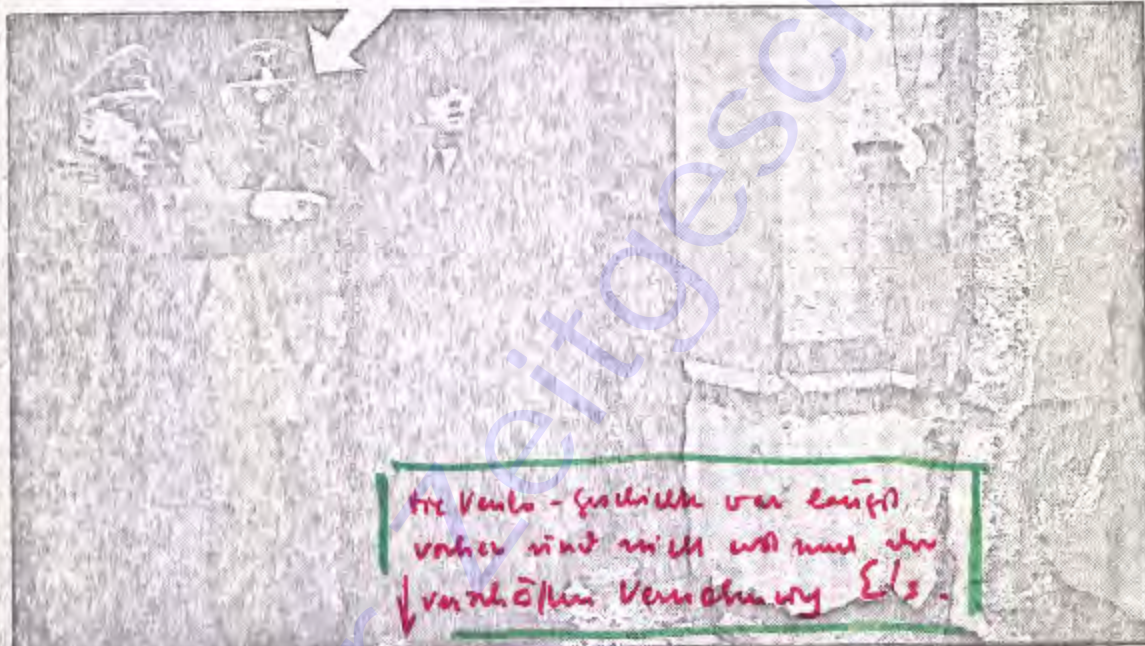 Zeitgesch
die Venlo-Geschichte war längst
vorher und nicht erst nach der
verschärften Vernehmung E's.